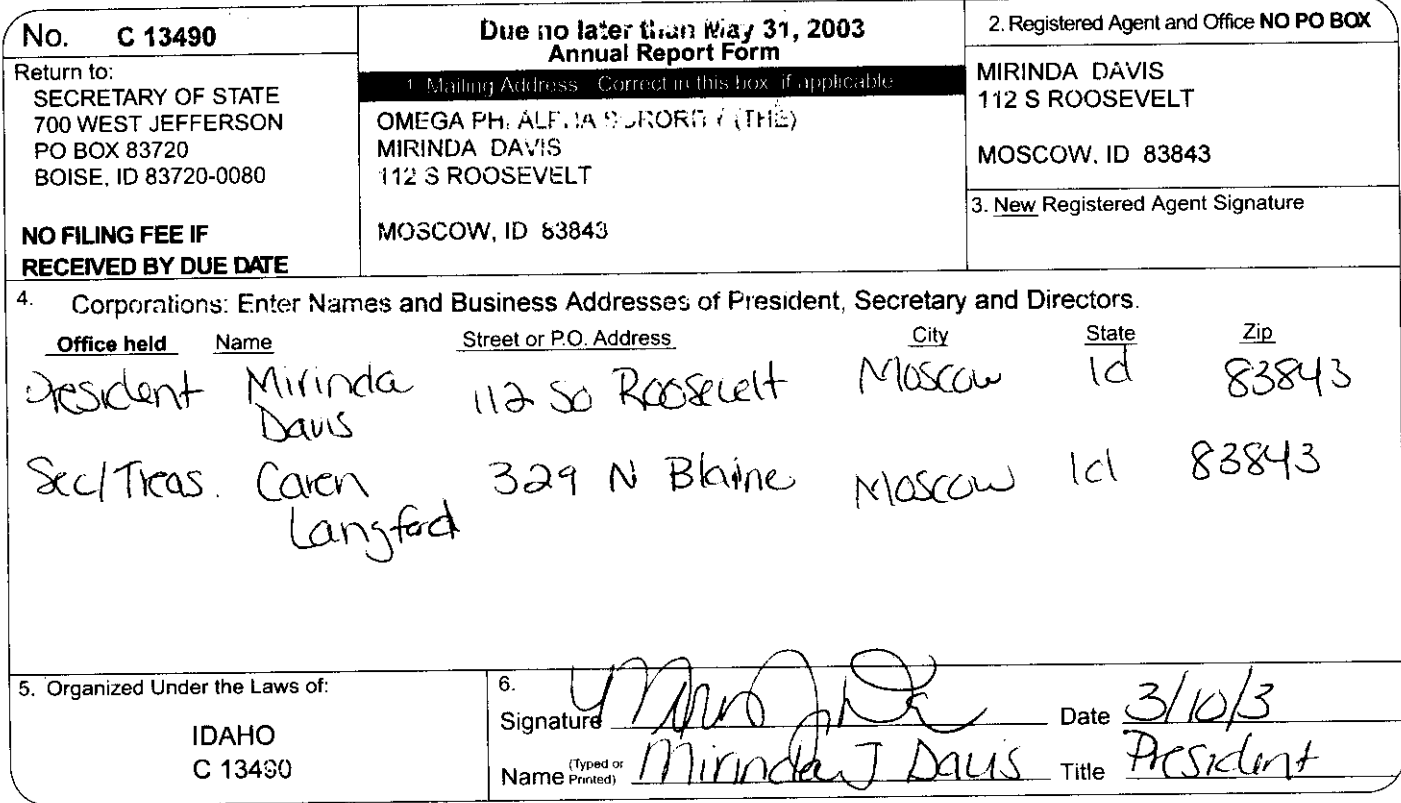 No. C 13490
Return to:
SECRETARY OF STATE
700 WEST JEFFERSON
PO BOX 83720
BOISE, ID 83720-0080
NO FILING FEE IF
RECEIVED BY DUE DATE
Due no later than May 31, 2003
Annual Report Form
1. Mailing Address Correct in this box if applicable
OMEGA PHI ALPHA SORORITY (THE)
MIRINDA DAVIS
112 S ROOSEVELT
MOSCOW, ID 83843
2. Registered Agent and Office NO PO BOX
MIRINDA DAVIS
112 S ROOSEVELT
MOSCOW, ID 83843
3. New Registered Agent Signature
4. Corporations: Enter Names and Business Addresses of President, Secretary and Directors.
Office held Name Street or P.O. Address City State Zip
President Mirinda 112 So Roosevelt Moscow Id 83843
Davis
Sec/Treas. Caren 329 N Blaine Moscow Id 83843
Langford
5. Organized Under the Laws of:
IDAHO
C 13490
6.
Signature Date 3/10/3
Name (Typed or Printed) Mirinda J Davis Title President